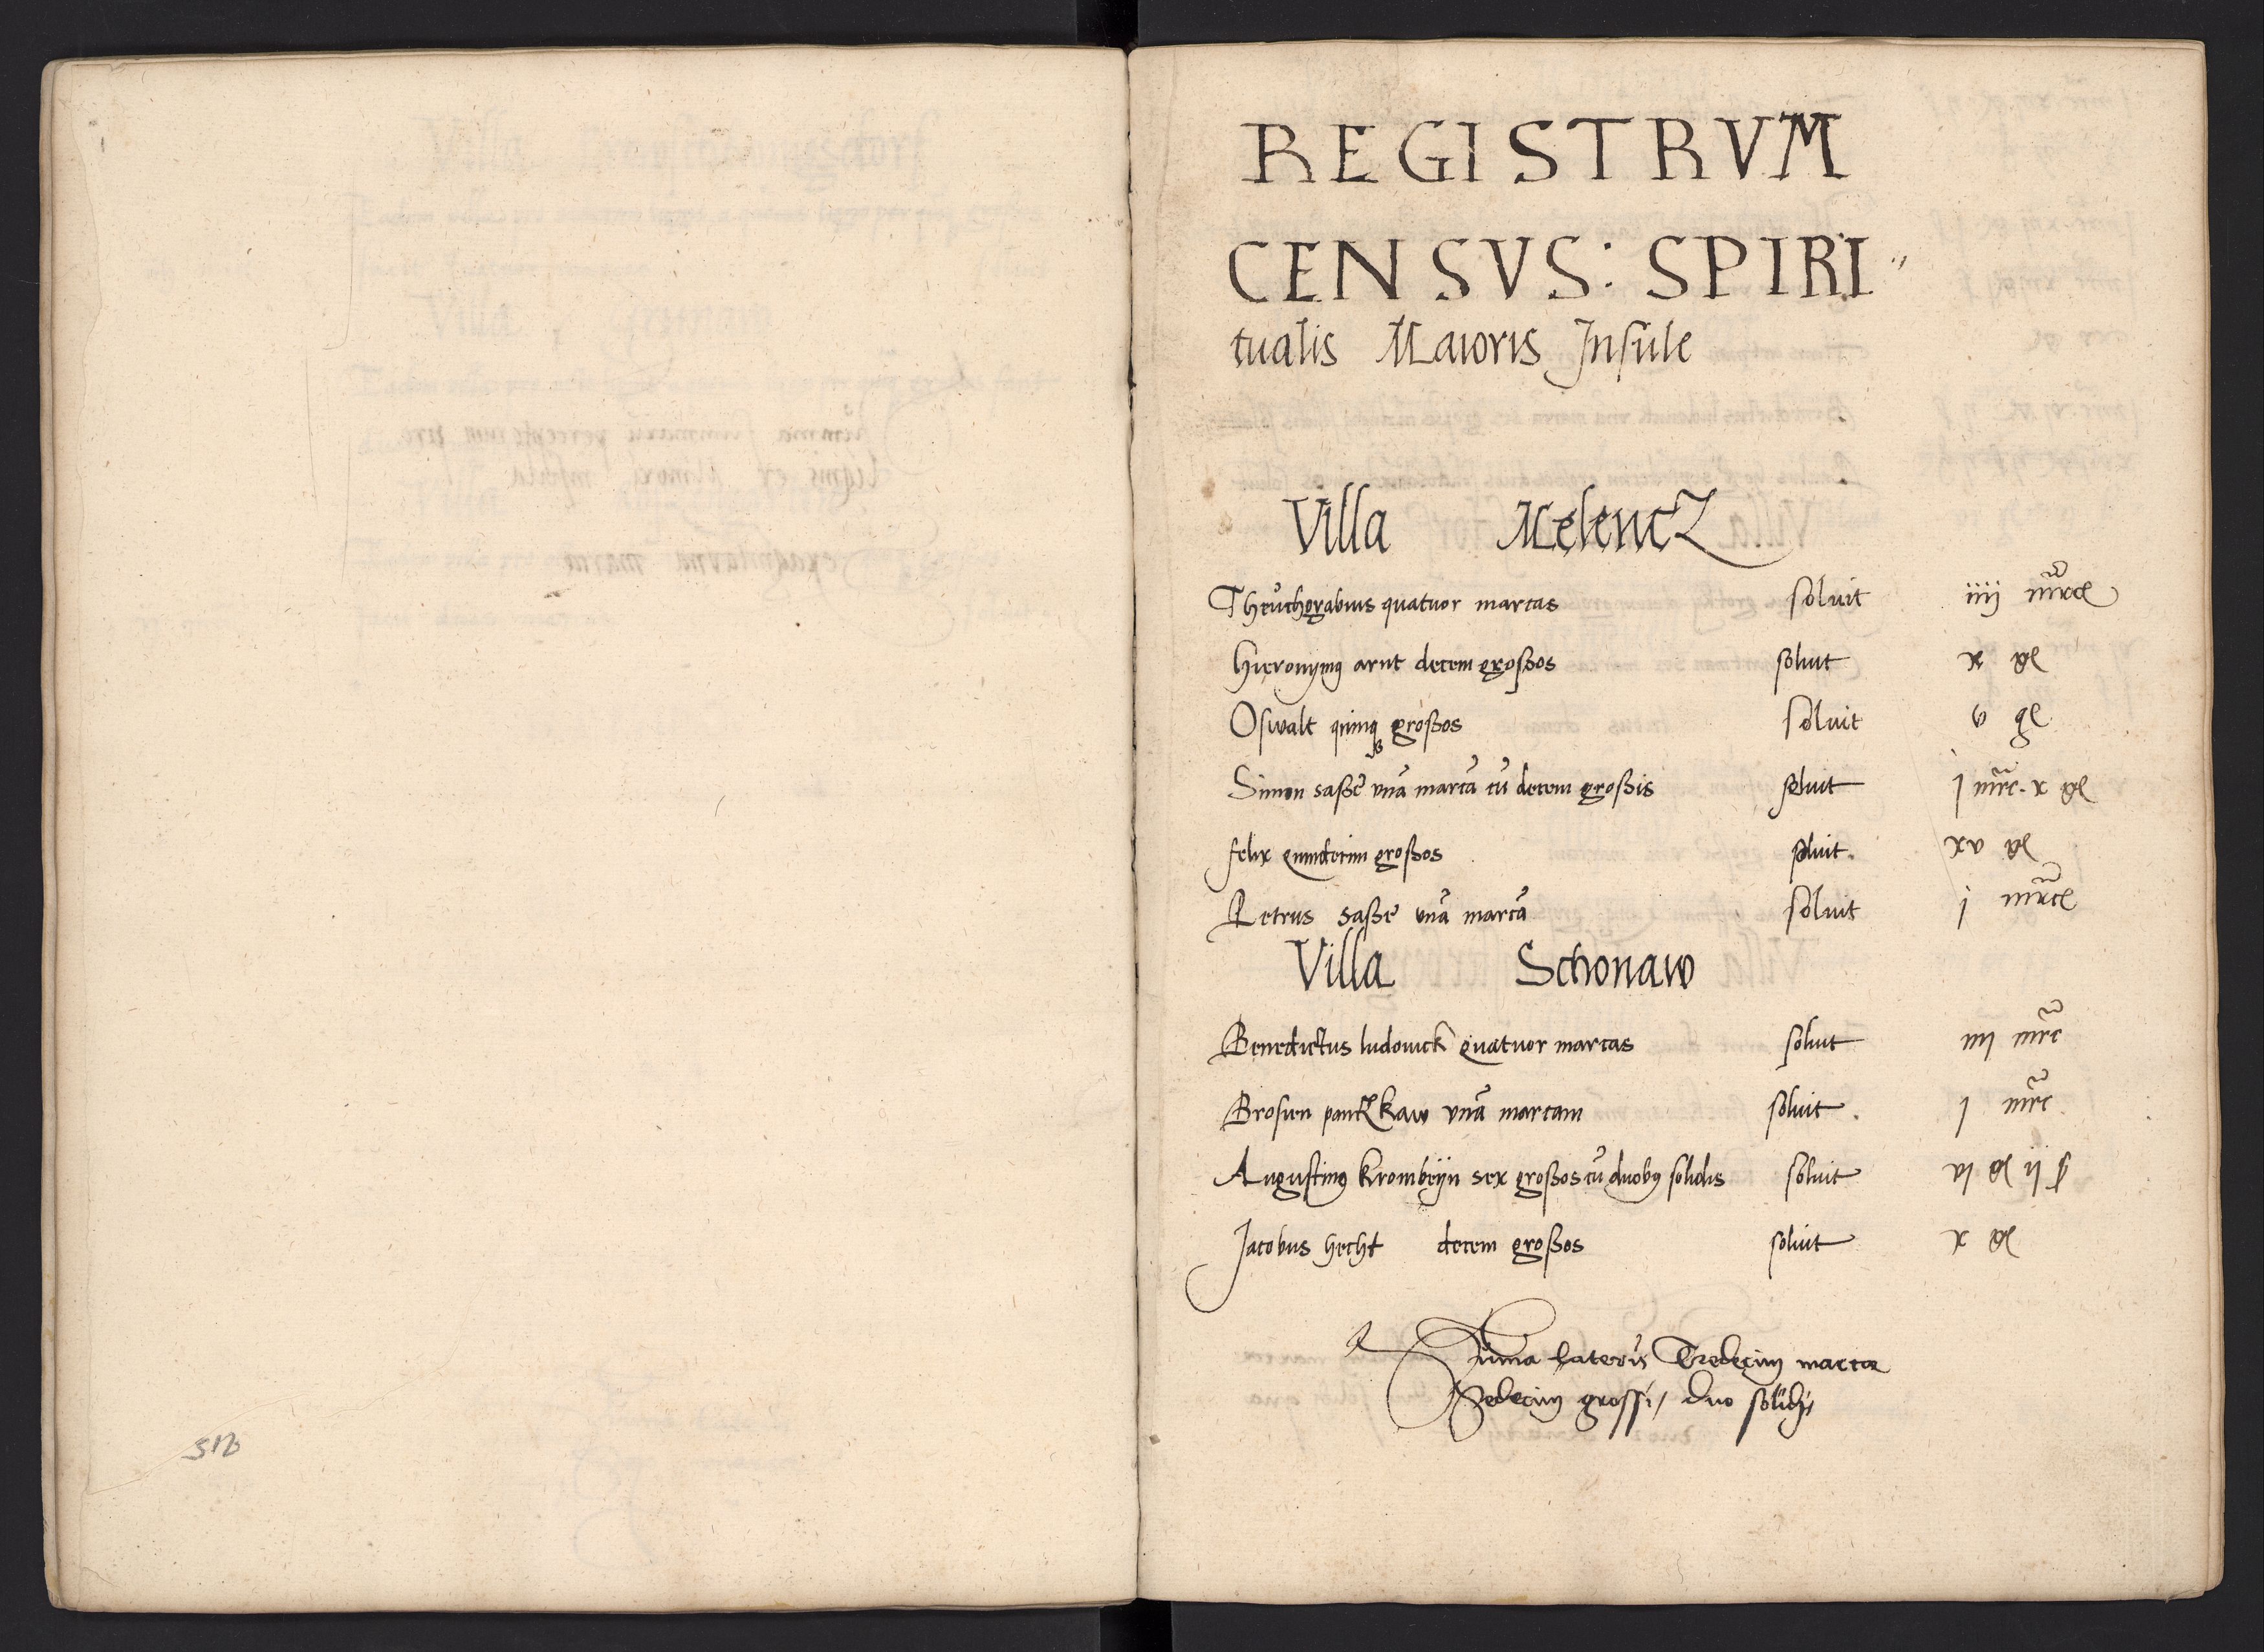 REGISTRVM
CENSVS: SPIRI〃
tualis Maioris Insule
Villa Melencz
quatuor marcas soluit iiij mrce
Hieronymꝰ arnt decem großos soluit x gl
Oswalt quinqꝫ großos soluit v gl
Simon saße vnā marcā cū decem großis soluit j mrc. x gl
felix quindecim großos soluit. xv gl
Petrus saße vnā marcā soluit j mrce
Villa Schonaw
Benedictus ludouick quatuor marcas soluit iiij mrc
Brosien pantzkaw vnā marcam soluit. j mrc
Augustinꝰ krombeijn sex großos cū duobꝰ solidis soluit vj gl ij ß
Jacobus hecht decem großos soluit x gl
Sūma Lateris Tredecim marcæ
Sedecim grossi/ duo solidi